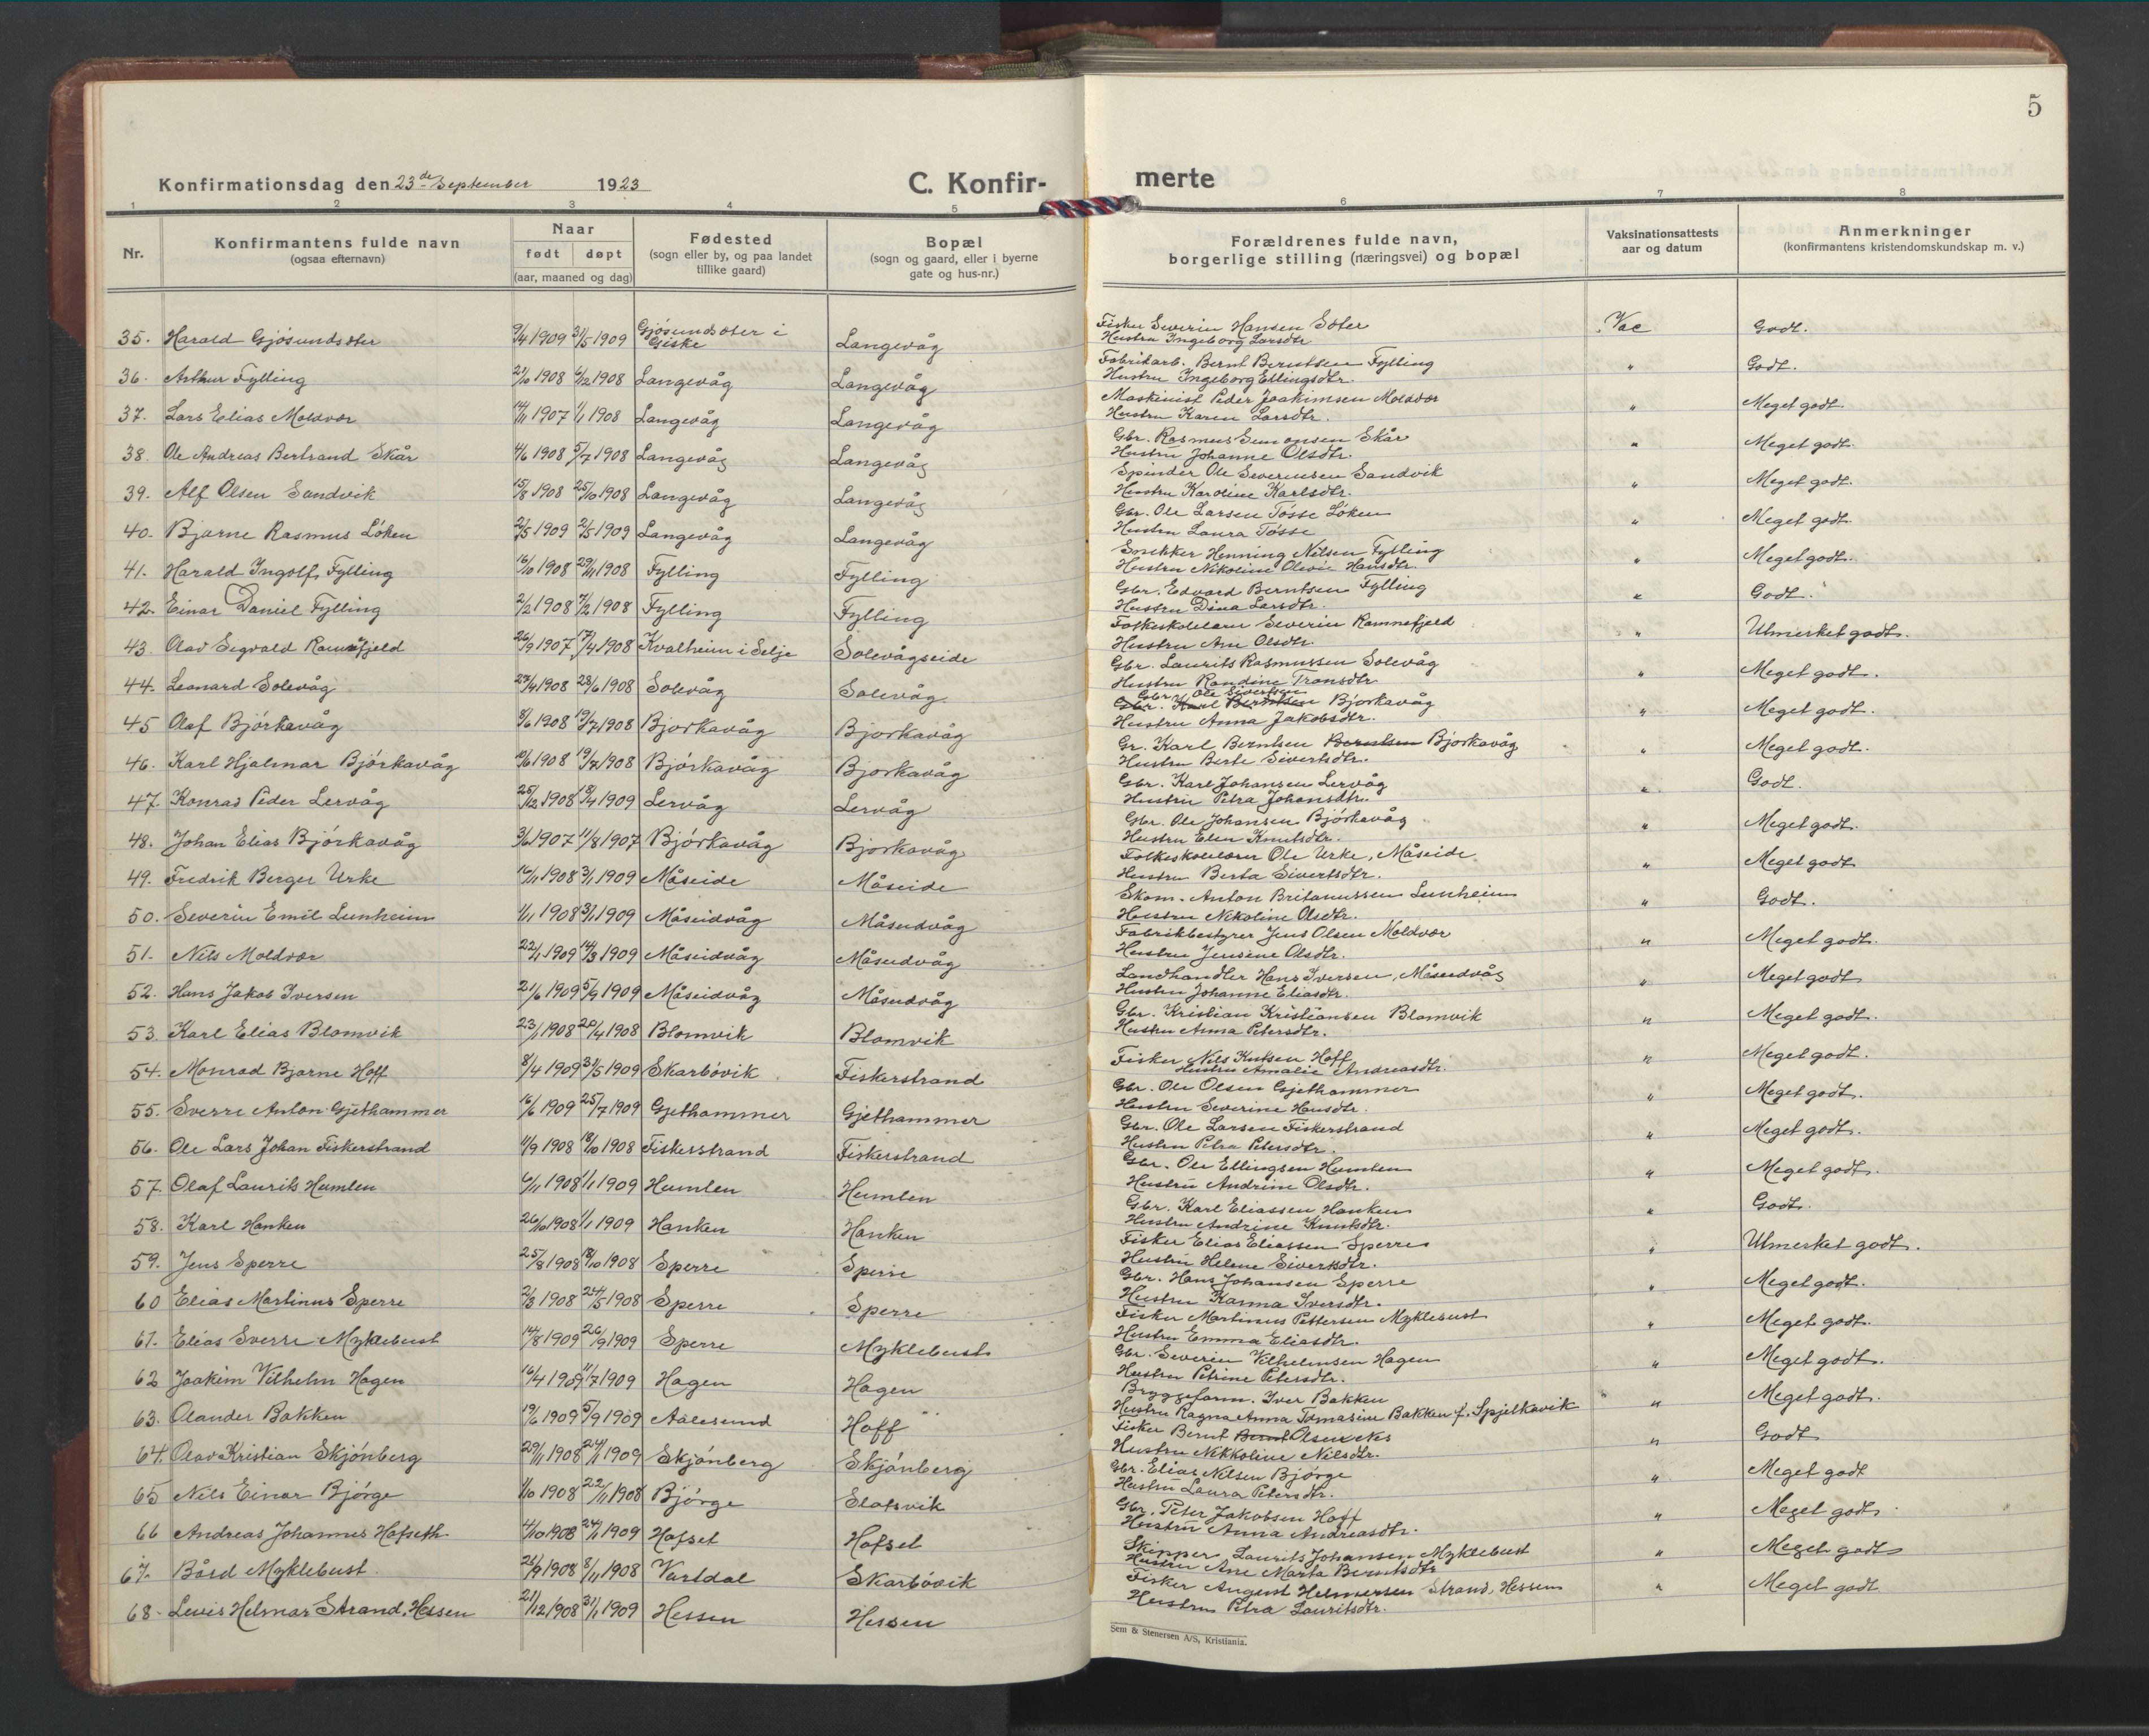 5
Konfirmationsdag den 23de September 1923
C. Konfir-
merte
1 2 3 4 5 6 7 8
Nr.
Konfirmantens fulde navn
(ogsaa efternavn)
Naar
født døpt
(aar, maaned og dag)
Fødested
(sogn eller by, og paa landet
tillike gaard)
Bopæl
(sogn og gaard, eller i byerne
gate og hus-nr.)
Forældrenes fulde navn,
borgerlige stilling (næringsvei) og bopæl
Vaksinationsattests
aar og datum
Anmerkninger
(konfirmantens kristendomskundskap m. v.)
35. Harald Gjøsundsæter 9/4 1909 31/5 1909 Gjøsundsæter i Giske Langevåg Fisker Severin Hansen Sæter Vac Godt.
Hustru Ingeborg Larsdtr
36. Arthur Fylling 21/10 1908 6/12 1908 Langevåg Langevåg Fabrikarb. Bernt Berntsen Fylling " Godt.
Hustru Ingeborg Ellingsdtr.
37. Lars Elias Moldvær 14/11 1907 1/1 1908 Langevåg Langevåg Maskinist Peder Joakimsen Moldvær " Meget godt.
Hustru Karen Larsdtr.
38. Ole Andreas Bertrand Skår 4/6 1908 5/7 1908 Langevåg Langevåg Gbr. Rasmus Simonsen Skår " Meget godt.
Hustru Johanne Olsdtr.
39. Alf Olsen Sandvik 15/8 1908 25/10 1908 Langevåg Langevåg Spinder Ole Severinsen Sandvik " Meget godt.
Hustru Karoline Karlsdtr.
40. Bjarne Rasmus Løken 2/5 1909 2/5 1909 Langevåg Langevåg Gbr. Ole Larsen Tøsse Løken " Meget godt.
Hustru Laura Tøsse
41. Harald Ingolf Fylling 16/10 1908 29/11 1908 Fylling Fylling Snekker Henning Nilsen Fylling " Meget godt.
Hustru Nikoline Olevie Hansdtr.
42. Einar Daniel Fylling 2/2 1908 7/2 1908 Fylling Fylling Gbr. Edvard Berntsen Fylling " Godt.
Hustru Dina Larsdtr.
43. Olav Sigvald Ramnefjeld 26/9 1907 17/4 1908 Kvalheim i Selje Solevågseide Folkeskolelærer Severin Ramnefjeld " Utmerket godt.
Hustru Ane Olsdtr.
44. Leonard Solevåg 23/4 1908 28/6 1908 Solevåg Solevåg Gbr. Laurits Rasmussen Solevåg " Meget godt.
Hustru Randine Tronsdtr
45 Olaf Bjørkavåg 8/6 1908 19/7 1908 Bjorkavåg Bjorkavåg Gbr. Ole Sivertsen Gbr. Karl Berntsen Bjorkavåg " Meget godt.
Hustru Anna Jakobsdtr.
46. Karl Hjalmar Bjørkavåg 10/6 1908 19/7 1908 Bjørkavåg Bjorkavåg Gr. Karl Berntsen Berntsen Bjorkavåg " Meget godt.
Hustru Berte Sivertsdtr.
47. Konrad Peder Lervåg 25/12 1908 18/4 1909 Lervåg Lervåg Gbr. Karl Johansen Lervåg " Godt.
Hustru Petra Johansdtr.
48. Johan Elias Bjørkavåg 3/6 1907 11/8 1907 Bjørkavåg Bjorkavåg Gbr. Ole Johansen Bjørkavåg " Meget godt.
Hustru Elen Knutsdtr.
49. Fredrik Berger Urke 16/11 1908 3/1 1909 Måseide Måseide Folkeskolelærer Ole Urke, Måseide " Meget godt
Hustru Berta Sivertsdtr.
50. Severin Emil Lunheim 1/11 1908 3/1 1909 Måseidvåg Måseidvåg Skom. Anton Britanussen Lunheim " Godt.
Hustru Nikoline Olsdtr.
51. Nils Moldvær 22/1 1909 14/3 1909 Måseidvåg Måseidvåg Fabrikbestyrer Jens Olsen Moldvær " Meget godt.
Hustru Jensine Olsdtr.
52. Hans Jakob Iversen 21/6 1909 5/9 1909 Måseidvåg Måseidvåg Landhandler Hans Iversen, Måseidvåg " Meget godt
Hustru Johanne Eliasdtr.
53. Karl Elias Blomvik 23/1 1908 20/4 1908 Blomvik Blomvik Gbr. Kristian Kristiansen Blomvik " Meget godt.
Hustru Anna Petersdtr.
54. Monrad Bjarne Hoff 8/4 1909 31/5 1909 Skarbøvik Fiskerstrand Fisker Nils Knutsen Hoff " Meget godt.
Hustru Amalie Andreasdtr.
55. Sverre Anton Gjethammer 16/6 1909 25/7 1909 Gjethammer Gjethammer Gbr. Ole Olsen Gjethammer " Meget godt.
Hustru Severine Hansdtr.
56. Ole Lars Johan Fiskerstrand 11/9 1908 18/10 1908 Fiskerstrand Fiskerstrand Gbr. Ole Larsen Fiskerstrand " Meget godt.
Hustru Petra Petersdtr.
57. Olaf Laurits Humlen 6/11 1908 1/1 1909 Humlen Humlen Gbr. Ole Ellingsen Humlen " Meget godt.
Hustru Andrine Olsdtr.
58. Karl Hanken 26/10 1908 1/1 1909 Hanken Hanken Gbr. Karl Eliassen Hanken " Godt.
Hustru Andrine Knutsdtr.
59. Jens Sperre 25/8 1908 18/10 1908 Sperre Sperre Fisker Elias Eliassen Sperre " Utmerket godt.
Hustru Helene Sivertsdtr.
60 Elias Martinus Sperre 2/3 1908 24/5 1908 Sperre Sperre Gbr. Hans Johansen Sperre " Meget godt.
Hustru Karma Iversdtr.
61. Elias Sverre Myklebust 14/8 1909 26/9 1909 Sperre Myklebust Fisker Martinus Pettersen Myklebust " Meget godt.
Hustru Emma Eliasdtr.
62 Joakim Vilhelm Hagen 16/4 1909 11/7 1909 Hagen Hagen Gbr. Severin Vilhelmsen Hagen " Meget godt.
Hustru Petrine Petersdtr.
63. Olander Bakken 19/6 1909 5/9 1909 Aalesund Hoff Bryggeform. Iver Bakken " Meget godt.
Hustru Ragna Anna Tomasine Bakken f. Spjelkavik
64. Olav Kristian Skjønberg 29/11 1908 24/1 1909 Skjønberg Skjønberg Fisker Bernt Bernt Olsen Nes " Godt
Hustru Nikkoline Nilsdtr.
65 Nils Einar Bjørge 1/10 1908 22/11 1908 Bjørge Slatsvik Gbr. Elias Nilsen Bjørge " Meget godt
Hustru Laura Petersdtr.
66 Andreas Johannes Hofseth 4/10 1908 24/1 1909 Hofset Hofset Gbr. Peter Jakobsen Hoff " Meget godt
Hustru Anna Andreasdtr.
67. Bård Myklebust. 25/9 1908 8/11 1908 Vartdal Skarbøvik Skipper Laurits Johansen Myklebust " Meget godt
Hustru Ane Marta Berntsdtr
68. Levis Helmar Strand, Hessen 21/12 1908 31/1 1909 Hessen Hessen Fisker August Helmersen Strand, Hessen " Meget godt
Hustru Petra Lauritsdtr.
Sem & Stenersen A/S, Kristiania.